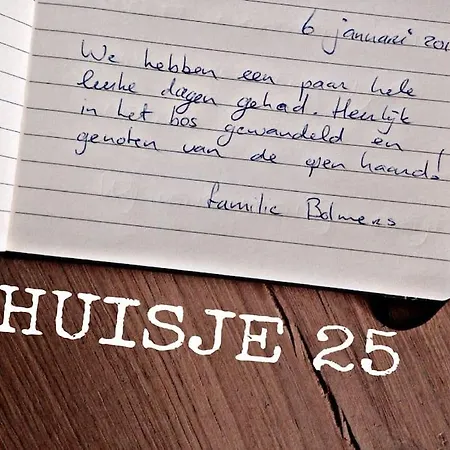 6 januari 20
We hebben een paar hele
leuke dagen gehad. Heerlijk
in het bos gewandeld en
genoten van de open haard!
Familie Bolmers
HUISJE 25